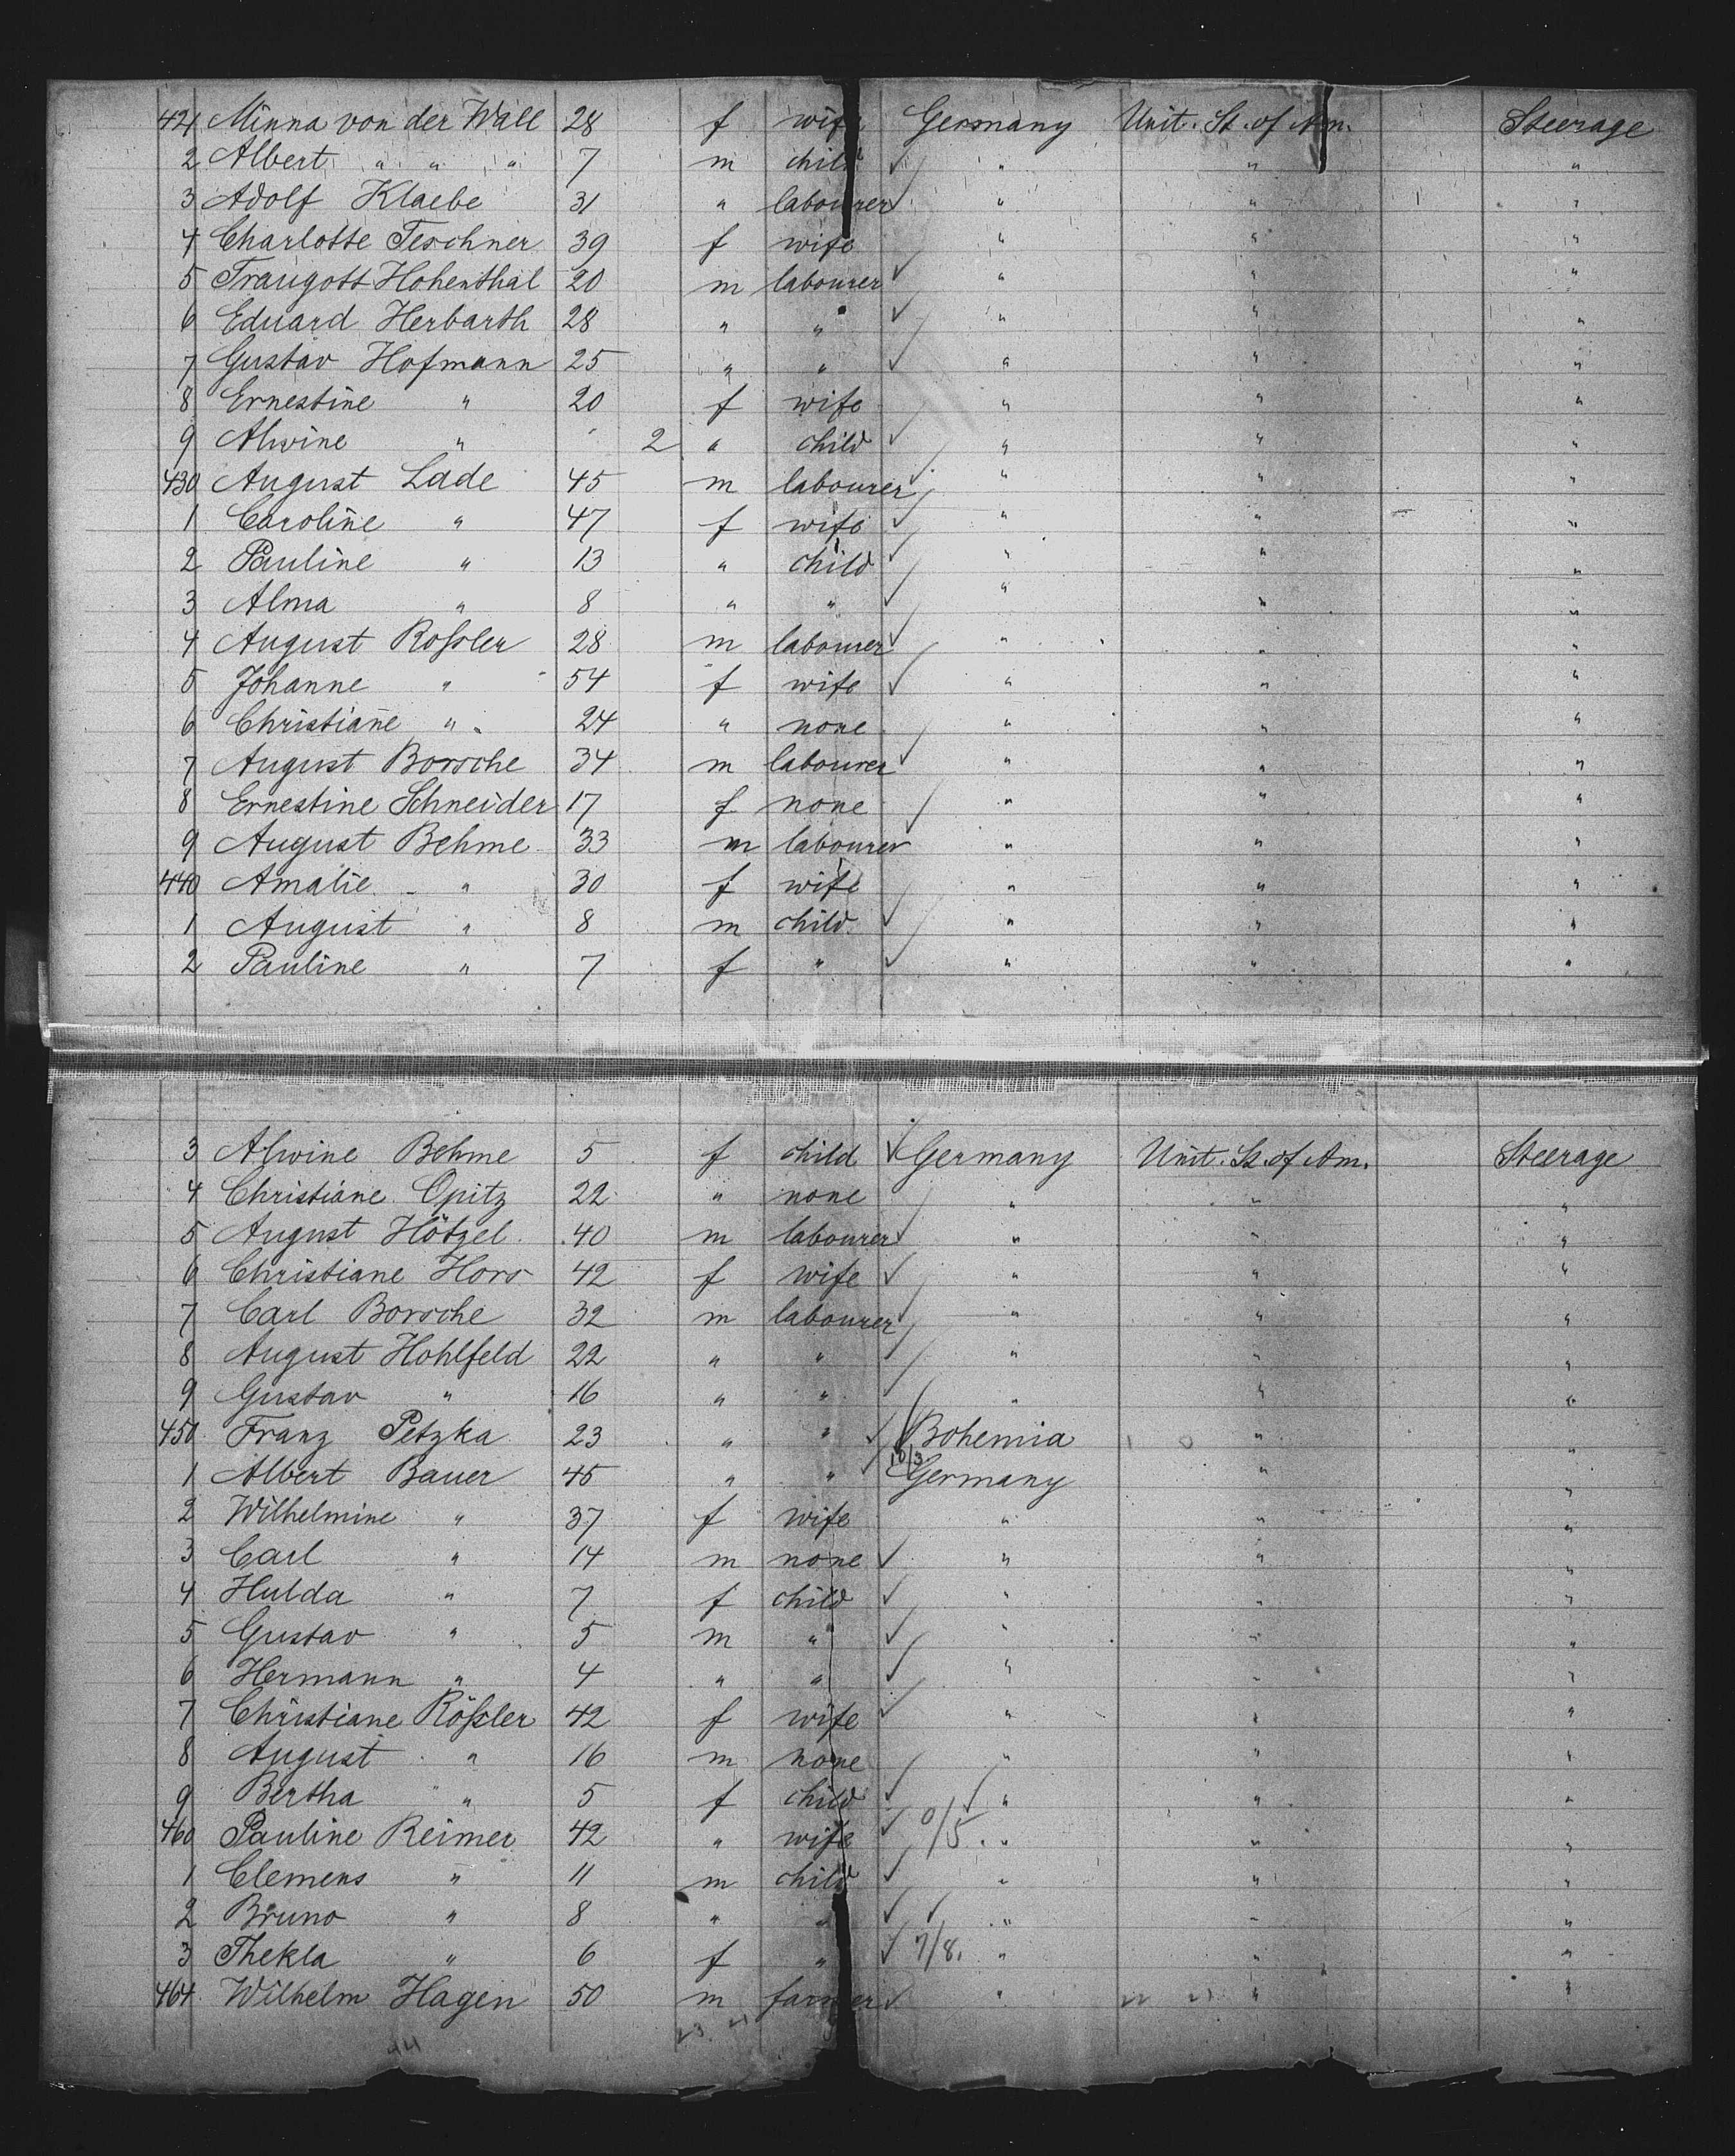 421 Minna von der Wall 28 f wife Germany Unit. St. of Am. Steerage
2 Albert " " " 7 m child " " "
3 Adolf Klaebe 31 " labourer " " "
4 Charlotte Teschner 39 f wife " " "
5 Traugott Hohenthal 20 m labourer " " "
6 Eduard Herbarth 28 " " " " "
7 Gustav Hofmann 25 " " " " "
8 Ernestine " 20 f wife " " "
9 Alwine " 2 " child " " "
430 August Lade 45 m labourer " " "
1 Caroline " 47 f wife " " "
2 Pauline " 13 " child " " "
3 Alma " 8 " " " " "
4 August Roßler 28 m labourer " " "
5 Johanne " 54 f wife " " "
6 Christiane " 24 " none " " "
7 August Borsche 34 m labourer " " "
8 Ernestine Schneider 17 f none " " "
9 August Behme 33 m labourer " " "
440 Amalie " 30 f wife " " "
1 August " 8 m child " " "
2 Pauline " 7 f " " " "
3 Alwine Behme 5 f child Germany Unit. St. of Am. Steerage
4 Christiane Opitz 22 " none " " "
5 August Hötzel 40 m labourer " " "
6 Christiane Hors 42 f wife " " "
7 Carl Borsche 32 m labourer " " "
8 August Hohlfeld 22 " " " " "
9 Gustav " 16 " " " " "
450 Franz Petzka 23 " " Bohemia " "
1 Albert Bauer 45 " " 10/3 Germany " "
2 Wilhelmine " 37 f wife " " "
3 Carl " 14 m none " " "
4 Hulda " 7 f child " " "
5 Gustav " 5 m " " " "
6 Hermann " 4 " " " " "
7 Christiane Rößler 42 f wife " " "
8 August " 16 m none " " "
9 Bertha " 5 f child " " "
460 Pauline Reimer 42 " wife 0/5 " " "
1 Clemens " 11 m child " " "
2 Bruno " 8 " " " " "
3 Thekla " 6 f " 7/8 " " "
464 Wilhelm Hagen 50 m farmer " " "